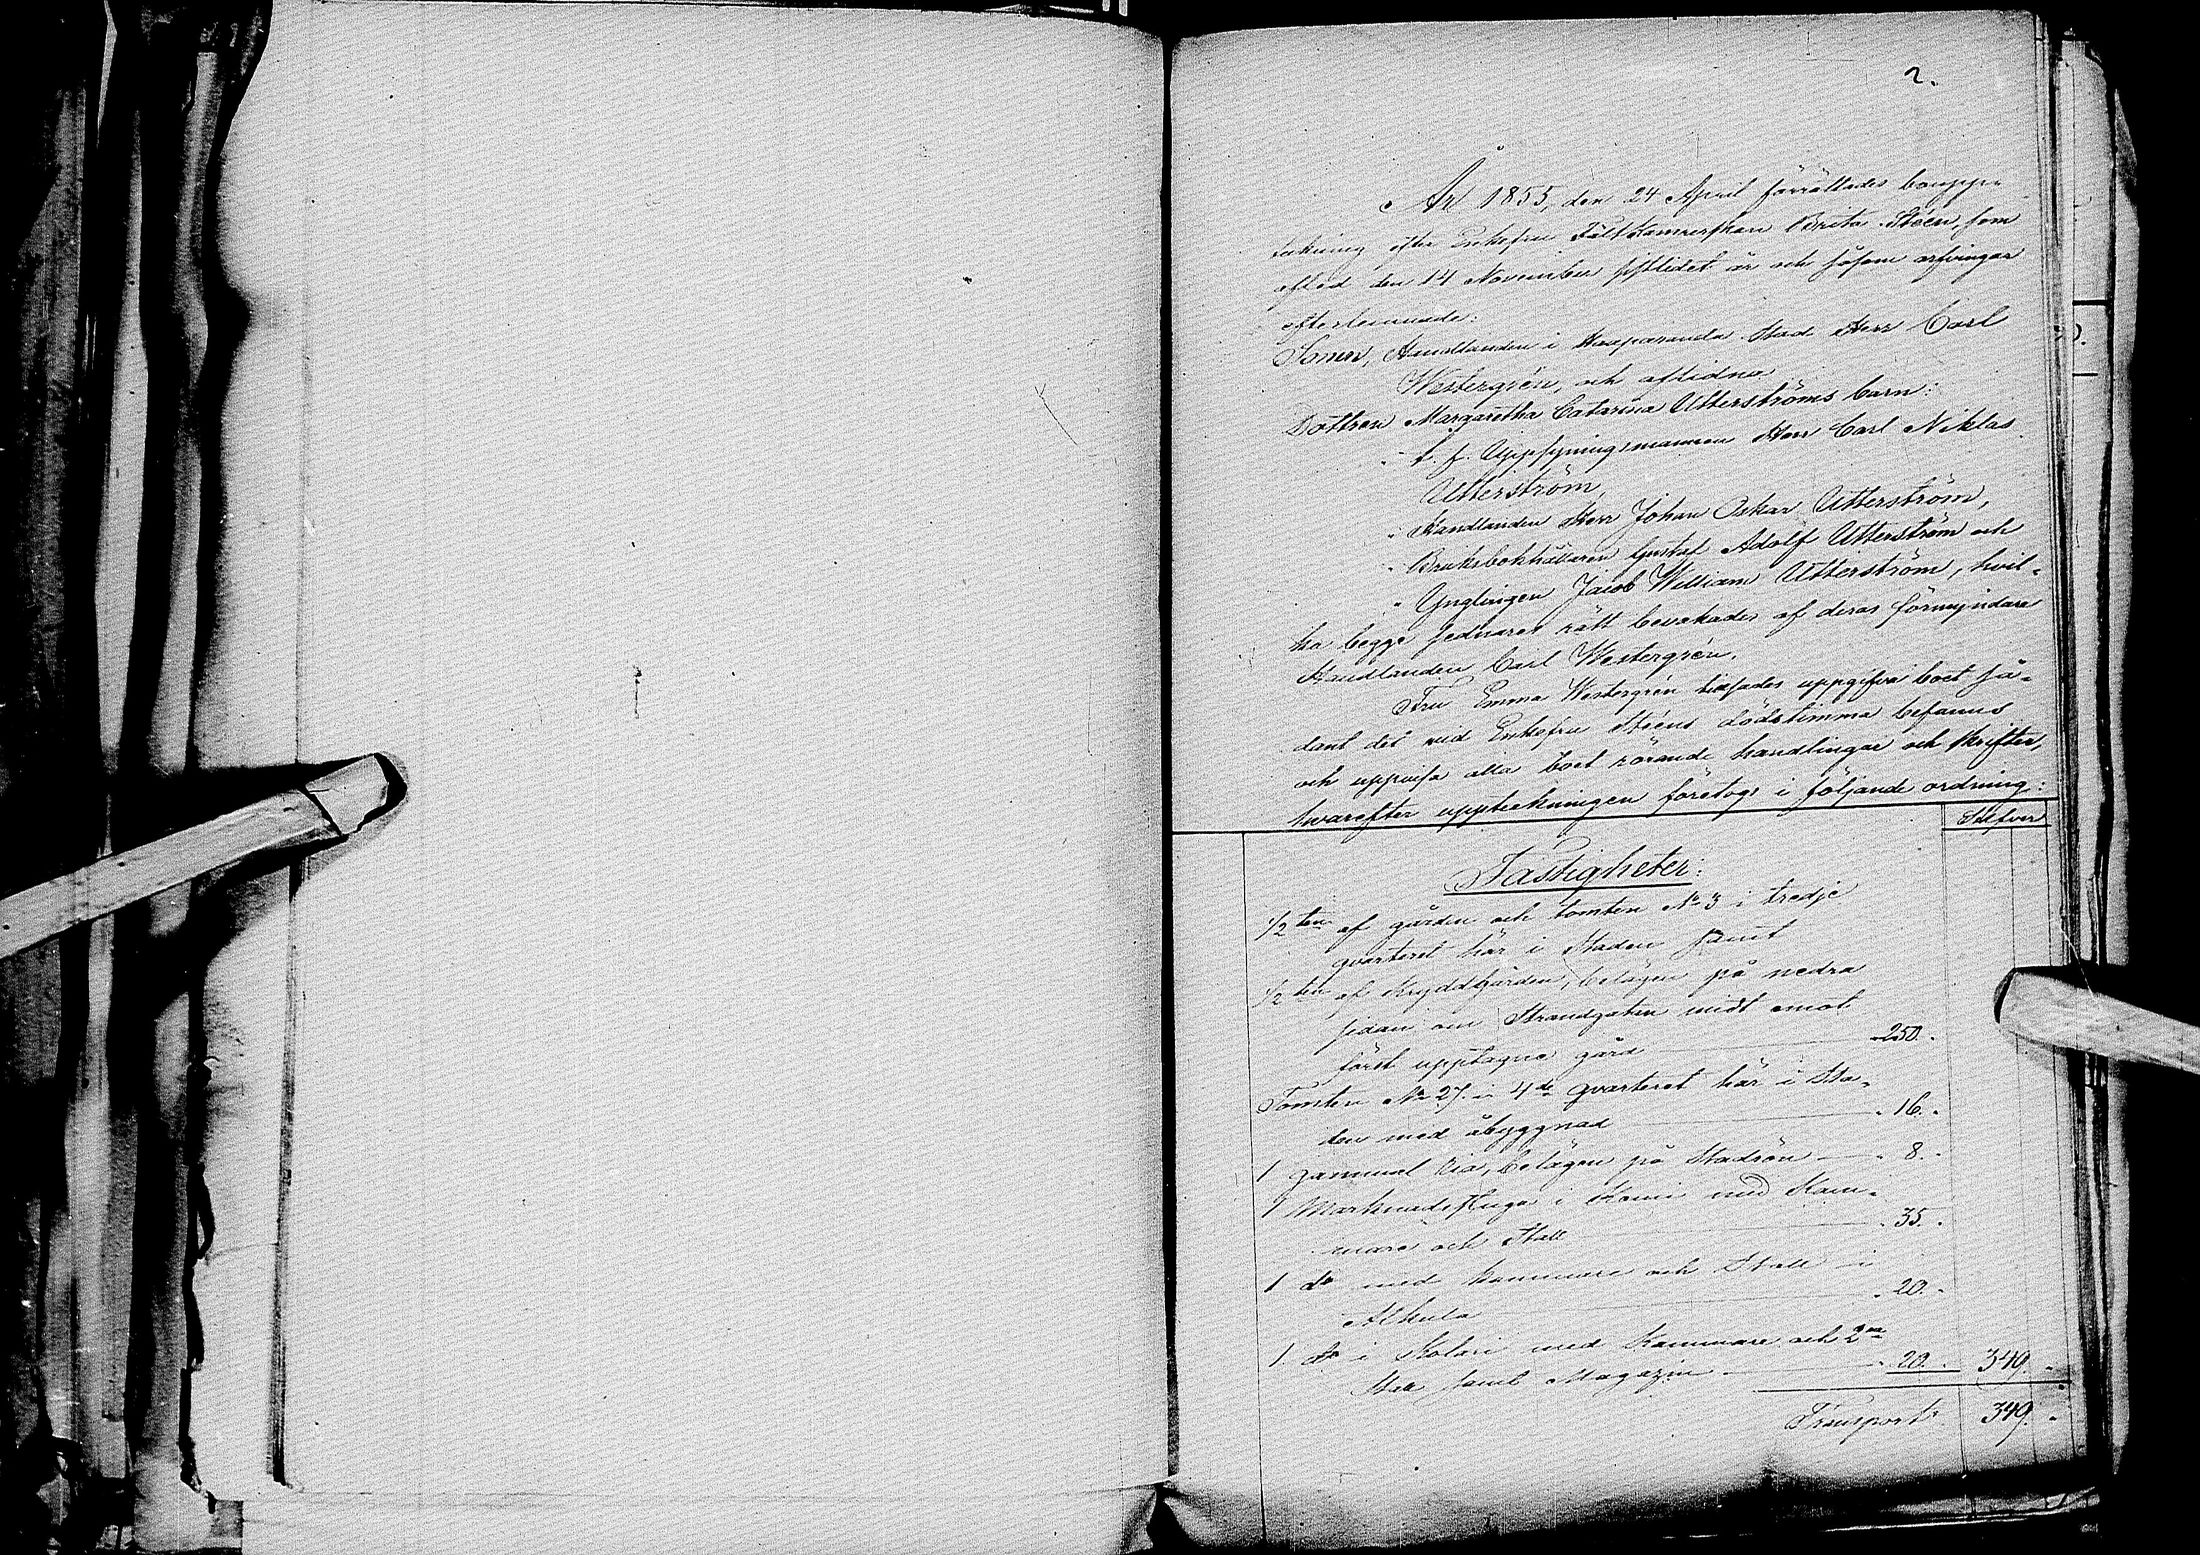 2.
År 1855, den 24 April förrättades bouppt-
tekning efter Enkefru Fältkamrerskan Brita Steén, som
afled den 14 November sistlidet år och såsom arfvingar
efterlemnade:
Sonen, Handlanden i Haaparanda Stad Herr Carl
Westergrén, och aflidna
Dottren Margaretha Catarina Utterströms barn:
" t. f. Uppsyningsmannen Herr Carl Niklas
Utterström,
" Handlanden Herr Johan Oskar Utterström,
" Bruksbokhållaren Gustaf Adolf Utterström och
" Ynglingen Jacob William Utterström, hvil-
ka begge sednares rätt bevakades af deras förmyndare
Handlanden Carl Westergrén.
Fru Emma Westergrén tillsades uppgifva boet så-
dant det vid Enkefru Steéns dödstimma befanns
och uppvisa alla boet rörande handlingar och skrifter,
hvarefter uppteckningen företogs i följande ordning:
Silfver
Fastigheter:
1/2 ten af gården och tomten No 3 i tredje
qvarteret här i Staden samt
1/2 ten af Kryddgården, belägen på nedra
sidan om Strandgatan midt emot
först upptagne gård " 250. "
Tomten No 27 i 4de qvarteret här i Sta-
den med åbyggnad " 16. "
1 gammal ria, belägen på Stadsön " 8. "
1 Marknadsstuga i Kemi med Kam-
mare och Stall " 35. "
1 do med kammare och Stall i
Alkula " 20. "
1 do i Kolari med Kammare och 2ne
Stall samt Magazin " 20. " 349. "
Transport 349. "